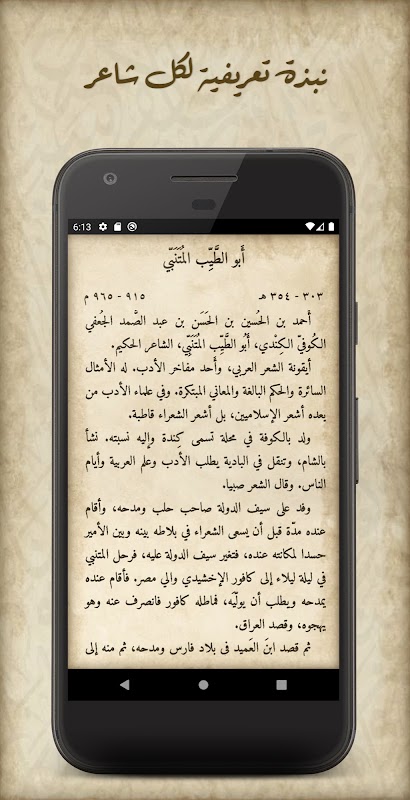 نبذة تعريفية لكل شاعر
6:13
أَبو الطَّيِّب المُتَنَبِّي
٣٠٣ - ٣٥٤ هـ
٩١٥ - ٩٦٥ م
أَحمد بن الحُسين بن الحَسَن بن عبد الصَّمد الجُعفي
الكُوفيّ الكِنْدي، أَبُو الطَّيِّب المُتَنَبِّي، الشاعر الحكيم.
أيقونة الشعر العربي، وأَحد مفاخر الأدب. له الأمثال
السائرة والحكم البالغة والمعاني المبتكرة. وفي علماء الأدب من
يعده أشعر الإسلاميين، بل أشعر الشعراء قاطبة.
ولد بالكوفة في محلة تسمى كِندة وإليه نسبته. نشأ
بالشام، وتنقل في البادية يطلب الأدب وعلم العربية وأيام
الناس. وقال الشعر صبيا.
وفد على سيف الدولة صاحب حلب ومدحه، وأقام
عنده مدّة قبل أن يسعى الشعراء في بلاطه بينه وبين الأمير
حسدا لمكانته عنده، فتغير سيف الدولة عليه، فرحل المتنبي
في ليلة ليلاء إلى كافور الإخشيدي والي مصر. فأقام عنده
يمدحه ويطلب أن يولّيَه، فماطله كافور فانصرف عنه وهو
يهجوه، وقصد العراق.
ثم قصد ابنَ العَميد في بلاد فارس ومدحه، ثم منه إلى